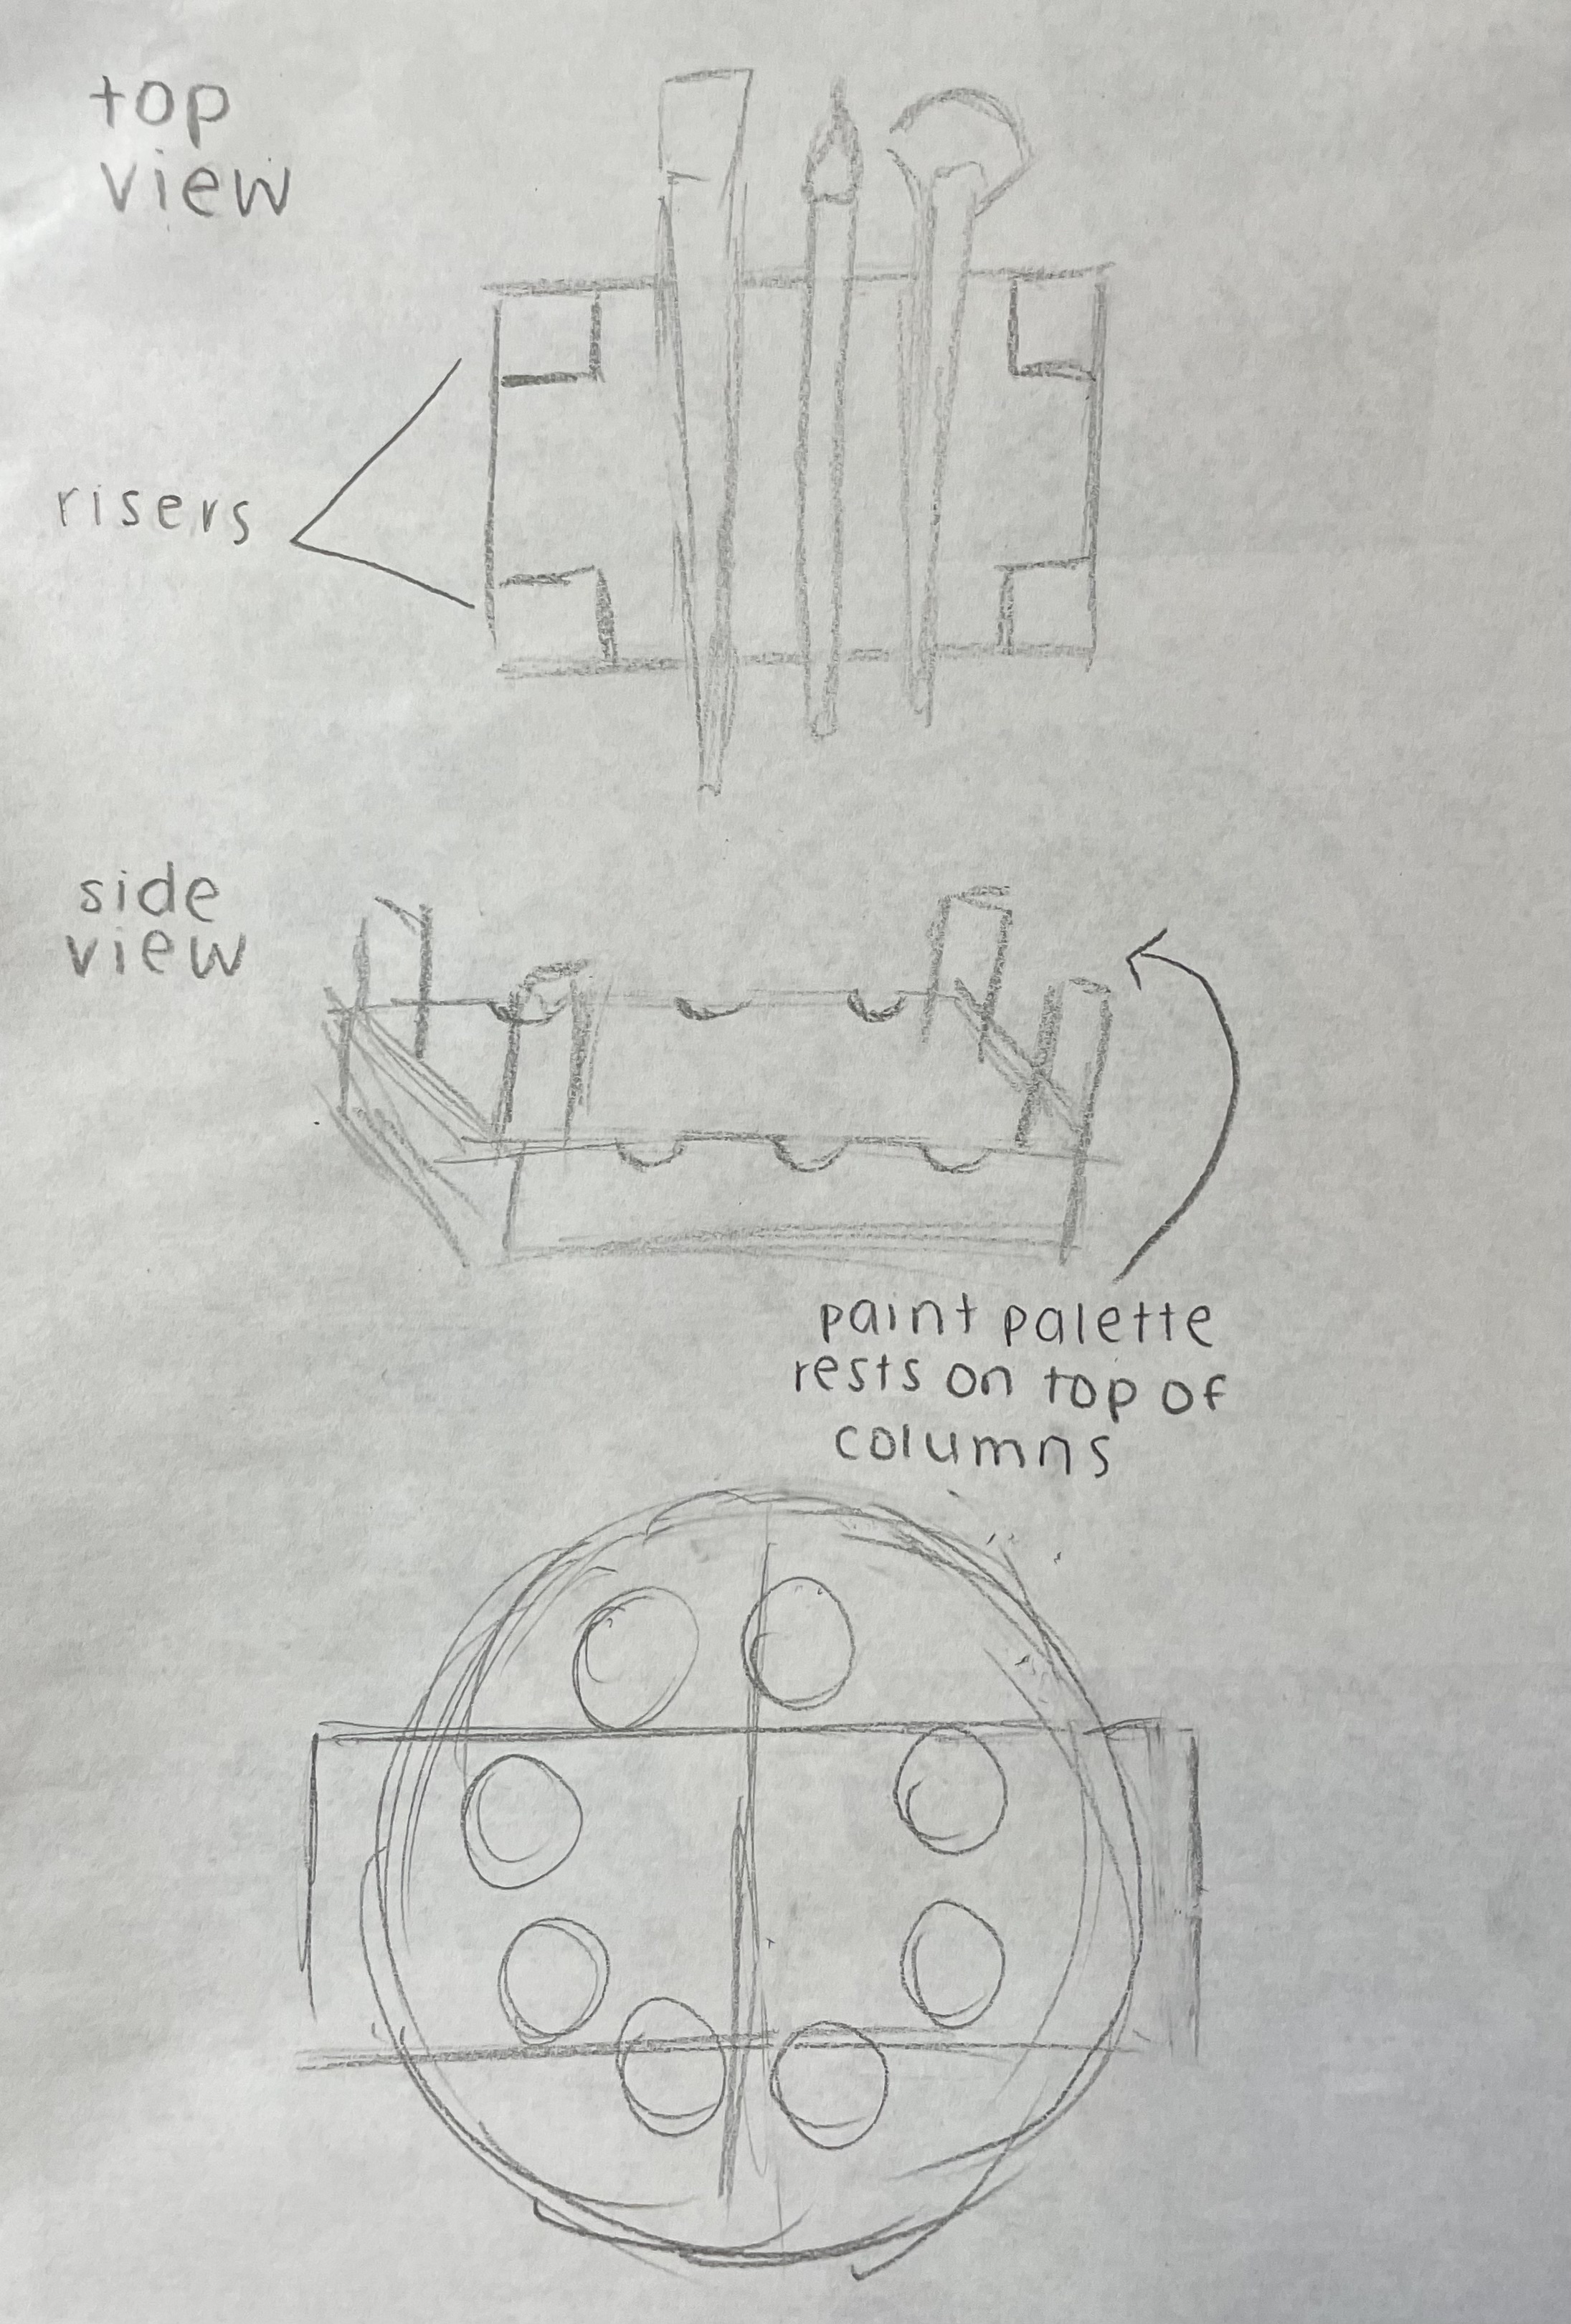 top
view
risers
side
view
paint palette
rests on top of
columns